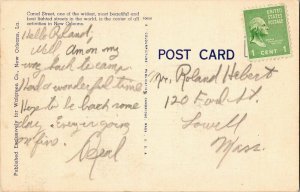 Canal Street, one of the widest, most beautiful and
best lighted streets in the world, is the center of all
activities in New Orleans.
Hello Roland,
Well Am on my
way back to camp.
Had a wonderful time
Hope to be back some
day. Every is going
on fine.
Real
Published Exclusively for Walgreen Co., New Orleans, La.
POST CARD
Mr. Roland Hebert
120 Ford St.
Lowell
Mass.
1 CENT 1